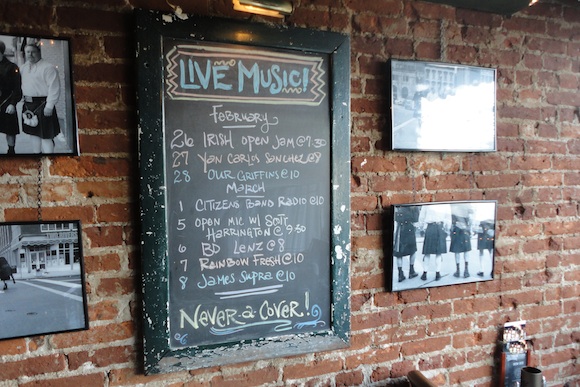 LIVE MUSIC!
February
26 IRISH OPEN JAM @ 7:30
27 YAN CARLOS SANCHEZ @ 8
28 OUR GRIFFINS @ 10
MARCH
1 CITIZENS BAND RADIO @ 10
5 OPEN MIC W/ SCOTT
HARRINGTON @ 9:30
6 BD LENZ @ 8
7 RAINBOW FRESH @ 10
8 JAMES SUPRA @ 10
NEVER-A-COVER!